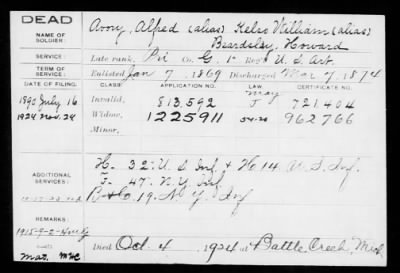 DEAD
NAME OF SOLDIER:
Avory, Alfred (alias) Kelso William (alias)
Beardsley, Howard
SERVICE:
Late rank, Pri Co. G, 1st Reg't U.S. Art.
TERM OF SERVICE:
Enlisted Jan 7, 1869 Discharged Mar 7, 1874
DATE OF FILING. CLASS. APPLICATION NO. LAW. CERTIFICATE NO.
May
1890 July 16 Invalid, 813,592 J 721.404
1924 Nov. 24 Widow, 1225911 962766
Minor,
ADDITIONAL SERVICES:
H- 32. U.S. Inf. & H. 14 U.S. Inf.
F- 47. N.Y. Inf.
B & C. 19. N.Y. Inf
REMARKS:
Died Oct. 4, 1924 at Battle Creek, Mich